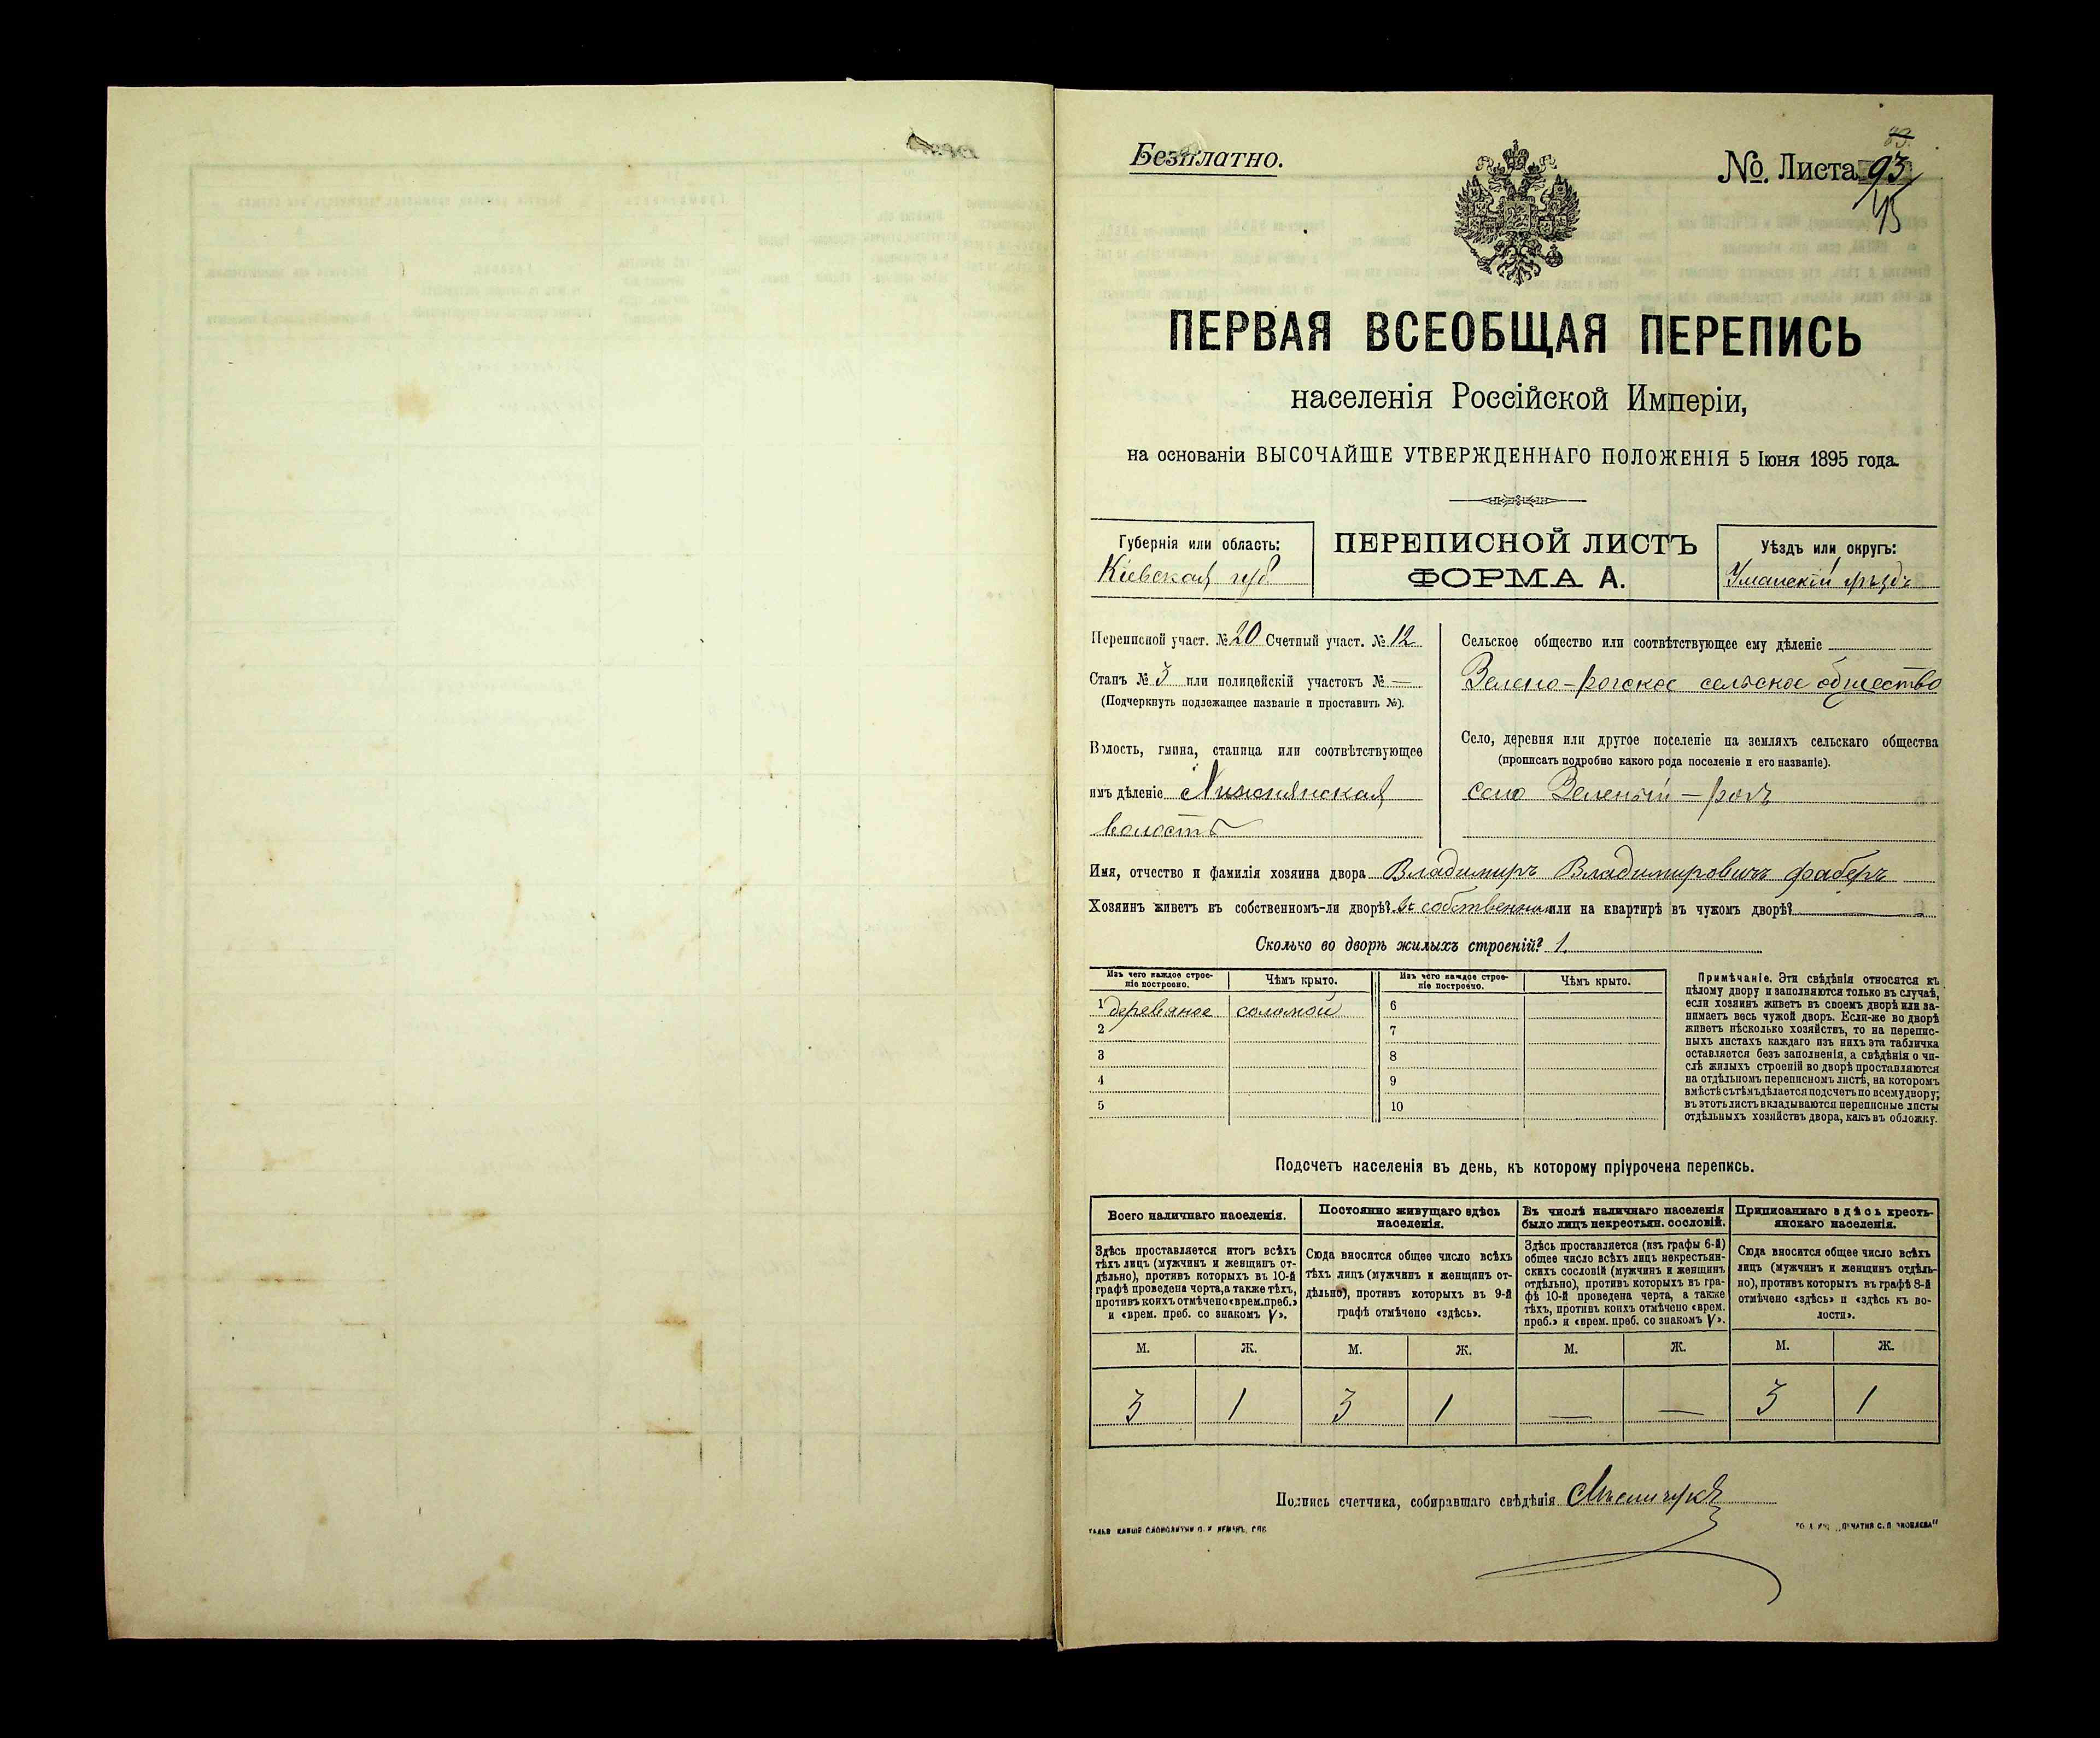 Безплатно.
№ Листа 93
45
ПЕРВАЯ ВСЕОБЩАЯ ПЕРЕПИСЬ
населенія Россійской Имперіи,
на основаніи ВЫСОЧАЙШЕ УТВЕРЖДЕННАГО ПОЛОЖЕНІЯ 5 Іюня 1895 года.
Губернія или область:
Кіевская губ
ПЕРЕПИСНОЙ ЛИСТЪ
ФОРМА А.
Уѣздъ или округъ:
Уманскій уѣздъ
Переписной участ. № 20 Счетный участ. № 12
Станъ № 3 или полицейскій участокъ № —
(Подчеркнуть подлежащее названіе и проставить №).
Волость, гмина, станица или соотвѣтствующее
имъ дѣленіе
волость
Сельское общество или соотвѣтствующее ему дѣленіе
Зелено-рогское сельское общество
Село, деревня или другое поселеніе на земляхъ сельскаго общества
(прописать подробно какого рода поселеніе и его названіе).
село Зеленый-рогъ
Имя, отчество и фамилія хозяина двора Владимиръ Владимировичъ Фаберъ
Хозяинъ живетъ въ собственномъ-ли дворѣ? въ собственном или на квартирѣ въ чужомъ дворѣ? —
Сколько во дворѣ жилыхъ строеній? 1.
Изъ чего каждое строе-
ніе построено.
Чѣмъ крыто.
Изъ чего каждое строе-
ніе построено.
Чѣмъ крыто.
1 деревяное соломой 6
2 7
3 8
4 9
5 10
Примѣчаніе. Эти свѣдѣнія относятся къ
цѣлому двору и заполняются только въ случаѣ,
если хозяинъ живетъ въ своемъ дворѣ или за-
нимаетъ весь чужой дворъ. Если-же во дворѣ
живетъ нѣсколько хозяйствъ, то на перепис-
ныхъ листахъ каждаго изъ нихъ эта табличка
оставляется безъ заполненія, а свѣдѣнія о чи-
слѣ жилыхъ строеній во дворѣ проставляются
на отдѣльномъ переписномъ листѣ, на которомъ
вмѣстѣ съ тѣмъ дѣлается подсчетъ по всему двору;
въ этотъ листъ вкладываются переписные листы
отдѣльныхъ хозяйствъ двора, какъ въ обложку.
Подсчетъ населенія въ день, къ которому пріурочена перепись.
Всего наличнаго населенія.
Здѣсь проставляется итогъ всѣхъ
тѣхъ лицъ (мужчинъ и женщинъ от-
дѣльно), противъ которыхъ въ 10-й
графѣ проведена черта, а также тѣхъ,
противъ коихъ отмѣчено «врем. преб.»
и «врем. преб. со знакомъ V».
Постоянно живущаго здѣсь
населенія.
Сюда вносится общее число всѣхъ
тѣхъ лицъ (мужчинъ и женщинъ от-
дѣльно), противъ которыхъ въ 9-й
графѣ отмѣчено «здѣсь».
Въ числѣ наличнаго населенія
было лицъ некрестьян. сословій.
Здѣсь проставляется (изъ графы 6-й)
общее число всѣхъ лицъ некрестьян-
скихъ сословій (мужчинъ и женщинъ
отдѣльно), противъ которыхъ въ гра-
фѣ 10-й проведена черта, а также
тѣхъ, противъ коихъ отмѣчено «врем.
преб.» и «врем. преб. со знакомъ V».
Приписаннаго здѣсь кресть-
янскаго населенія.
Сюда вносится общее число всѣхъ
лицъ (мужчинъ и женщинъ отдѣль-
но), противъ которыхъ въ графѣ 8-й
отмѣчено «здѣсь» и «здѣсь къ во-
лости».
М. Ж. М. Ж. М. Ж. М. Ж.
3 1 3 1 — — 3 1
Подпись счетчика, собиравшаго свѣдѣнія